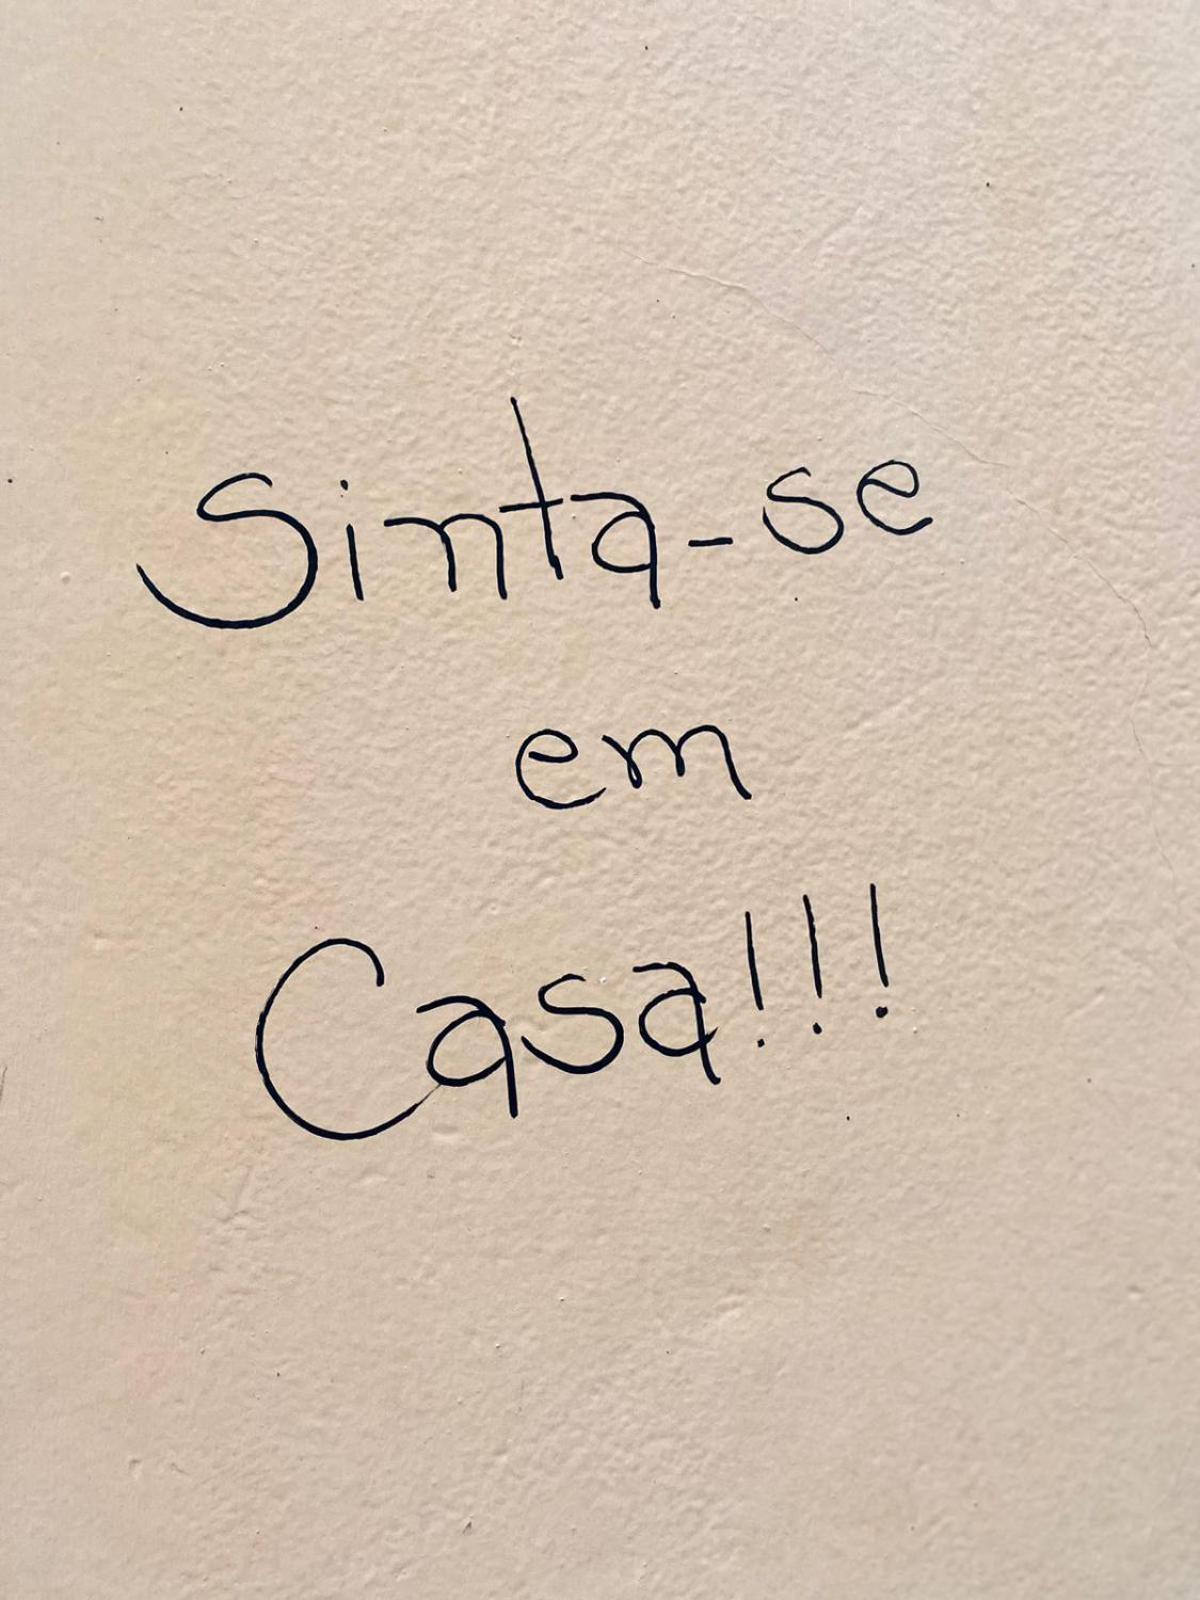 Sinta-se
em
Casa!!!